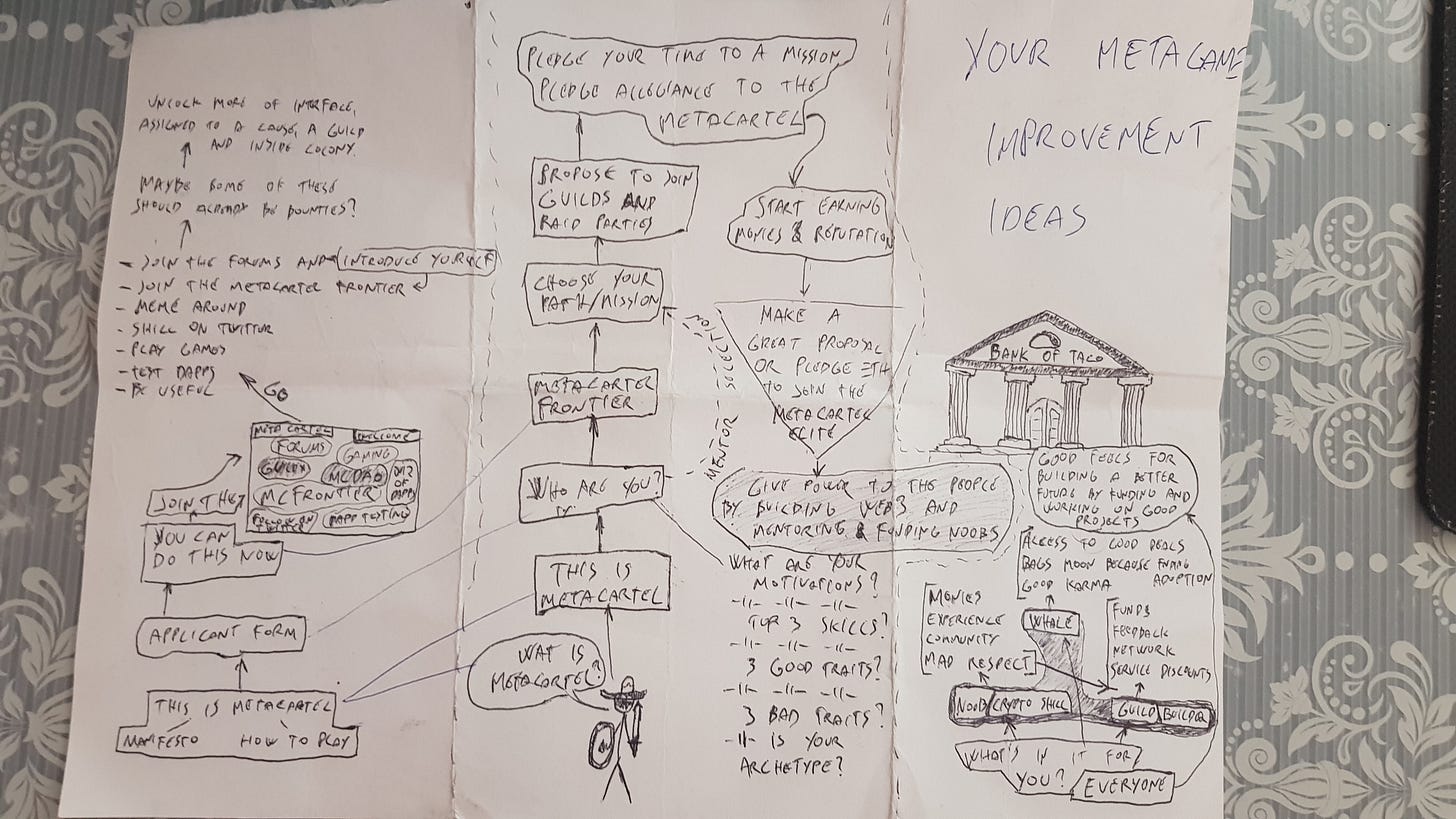 UNLOCK MORE OF INTERFACE,
ASSIGNED TO A CAUSE, A GUILD
AND INSIDE COLONY.
MAYBE SOME OF THESE
SHOULD ALREADY BE BOUNTIES?
- JOIN THE FORUMS AND INTRODUCE YOURSELF
- JOIN THE METACARTEL FRONTIER
- MEME AROUND
- SHILL ON TWITTUR
- PLAY GAMES
- TEST DAPPS
- BE USEFUL
GO
META CARTEL
WELCOME
FORUMS
GAMING
GUILDS
MCDAO
MCFRONTIER
OF
DAPPS
FOLLOW ON
TWITTER
DAPP TESTING
JOIN THE
YOU CAN
DO THIS NOW
APPLICANT FORM
THIS IS METACARTEL
MANIFESTO HOW TO PLAY
PLEDGE YOUR TIME TO A MISSION
PLEDGE ALLEGIANCE TO THE
METACARTEL
PROPOSE TO JOIN
GUILDS AND
RAID PARTIES
CHOOSE YOUR
PATH/MISSION
METACARTEL
FRONTIER
WHO ARE YOU?
THIS IS
METACARTEL
WAT IS
METACARTEL?
START EARNING
MONIES & REPUTATION
MAKE A
GREAT PROPOSAL
OR PLEDGE ETH
TO JOIN THE
METACARTEL
ELITE
MENTOR SELECTION
GIVE POWER TO THE PEOPLE
BY BUILDING WEB3 AND
MENTORING & FUNDING NOOBS
WHAT ARE YOUR
MOTIVATIONS?
-11- -11- -11-
TOP 3 SKILLS?
-11- -11- -11-
3 GOOD TRAITS?
-11- -11- -11-
3 BAD TRAITS?
-11- IS YOUR
ARCHETYPE?
YOUR METAGAME
IMPROVEMENT
IDEAS
BANK OF TACO
GOOD FEELS FOR
BUILDING A BETTER
FUTURE BY FUNDING AND
WORKING ON GOOD
PROJECTS
ACCESS TO GOOD DEALS
BAGS MOON BECAUSE
GOOD KARMA ADOPTION
MONIES
EXPERIENCE
COMMUNITY
MAD RESPECT
WHALE
FUNDS
FEEDBACK
NETWORK
SERVICE DISCOUNTS
NOOB/CRYPTO SHILL
GUILD BUILDER
WHAT'S IN IT FOR
YOU? EVERYONE